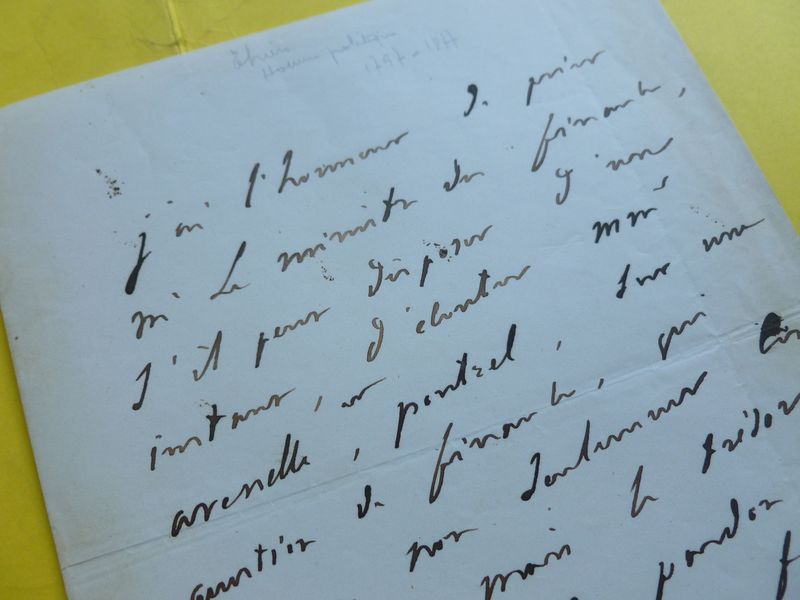 Thiers
Homme politique
1797-1877
j'ai l'honneur de prier
m. le ministre des finances,
s'il peut disposer d'un
instant, et d'écouter mm rs
arenelle, pontrel, sur une
question de finances, qui
non seulement
mais le trésor